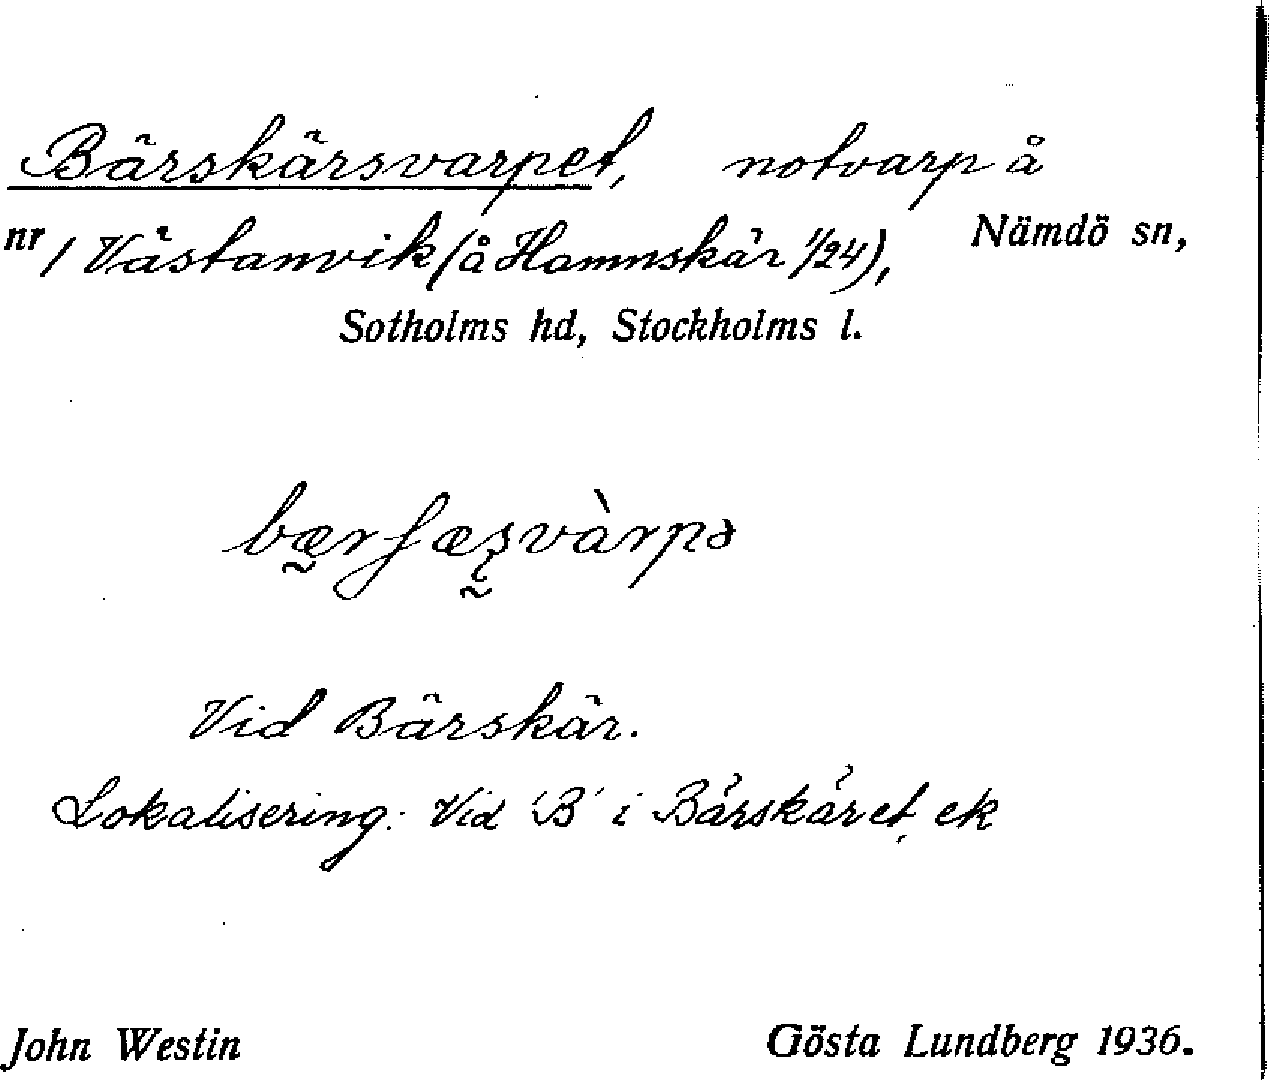 Bärskärsvarpet, notvarp å
nr 1 Västanvik (å Hamnskär 1/24), Nämdö sn,
Sotholms hd, Stockholms l.
Vid Bärskär.
Lokalisering: Vid 'B' i Bärskäret, ek
John Westin Gösta Lundberg 1936.